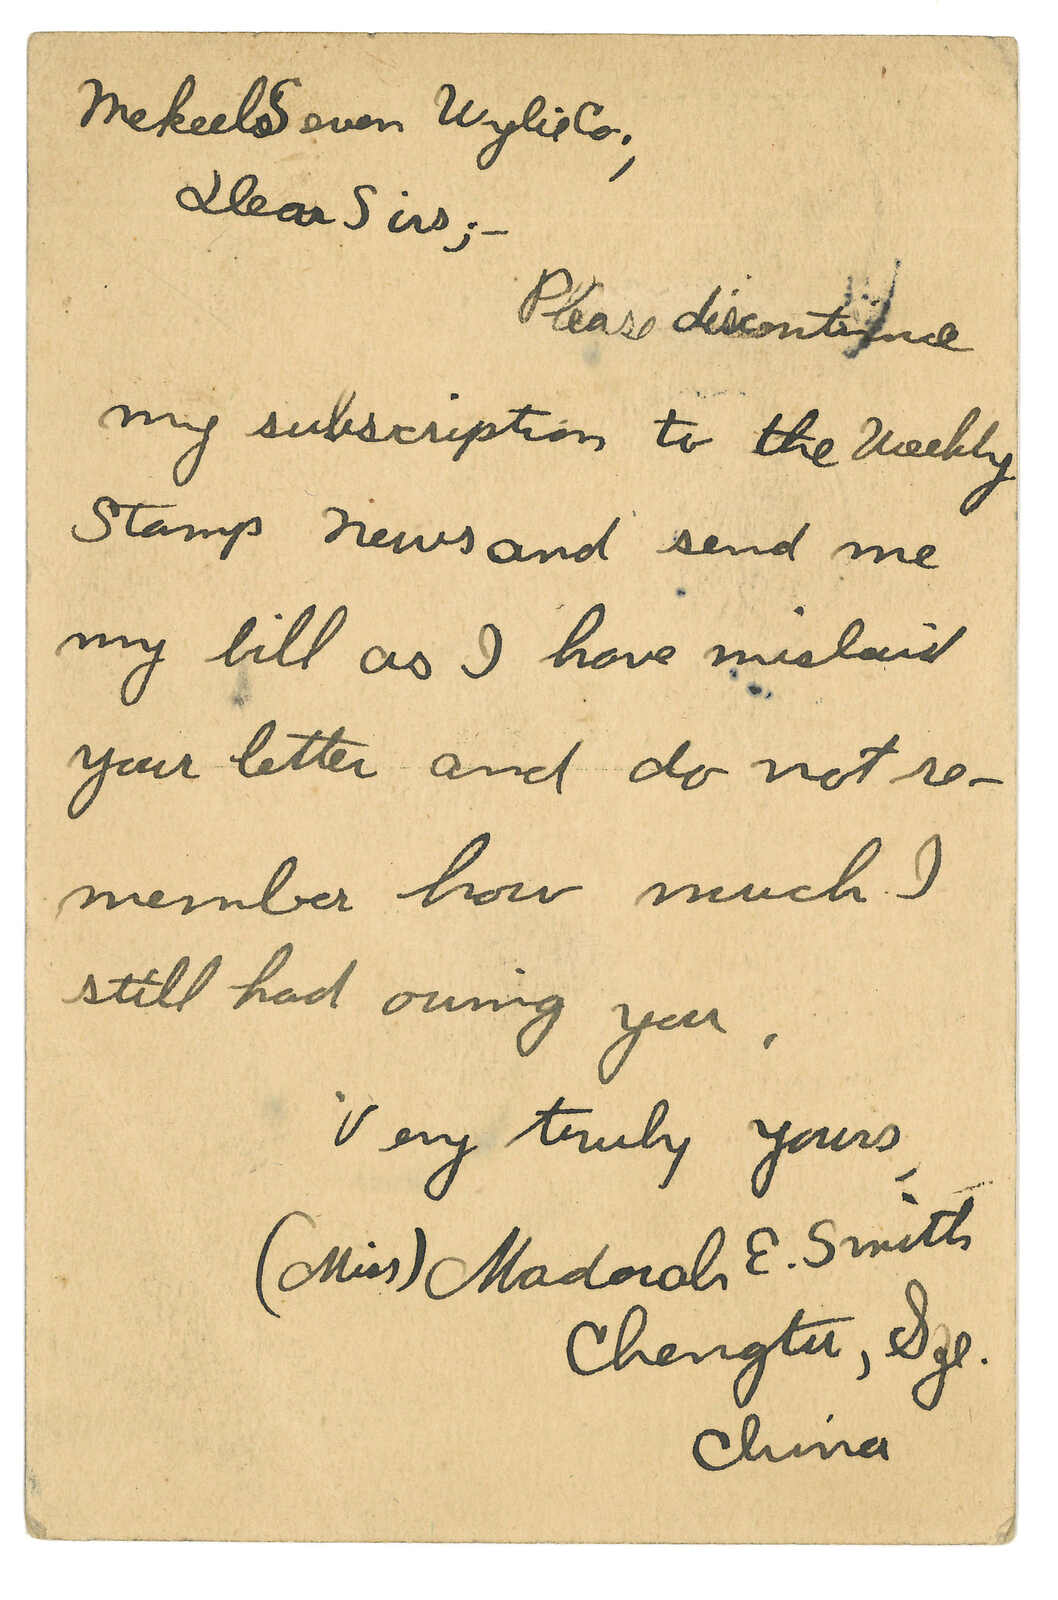 Mekeels Seven Wylie Co.,
Dear Sirs;-
Please discontinue
my subscription to the Weekly
Stamp News and send me
my bill as I have mislaid
your letter and do not re-
member how much I
still had owing you,
Very truly yours,
(Miss) Madorah E. Smith
Chengtu, Sze.
China